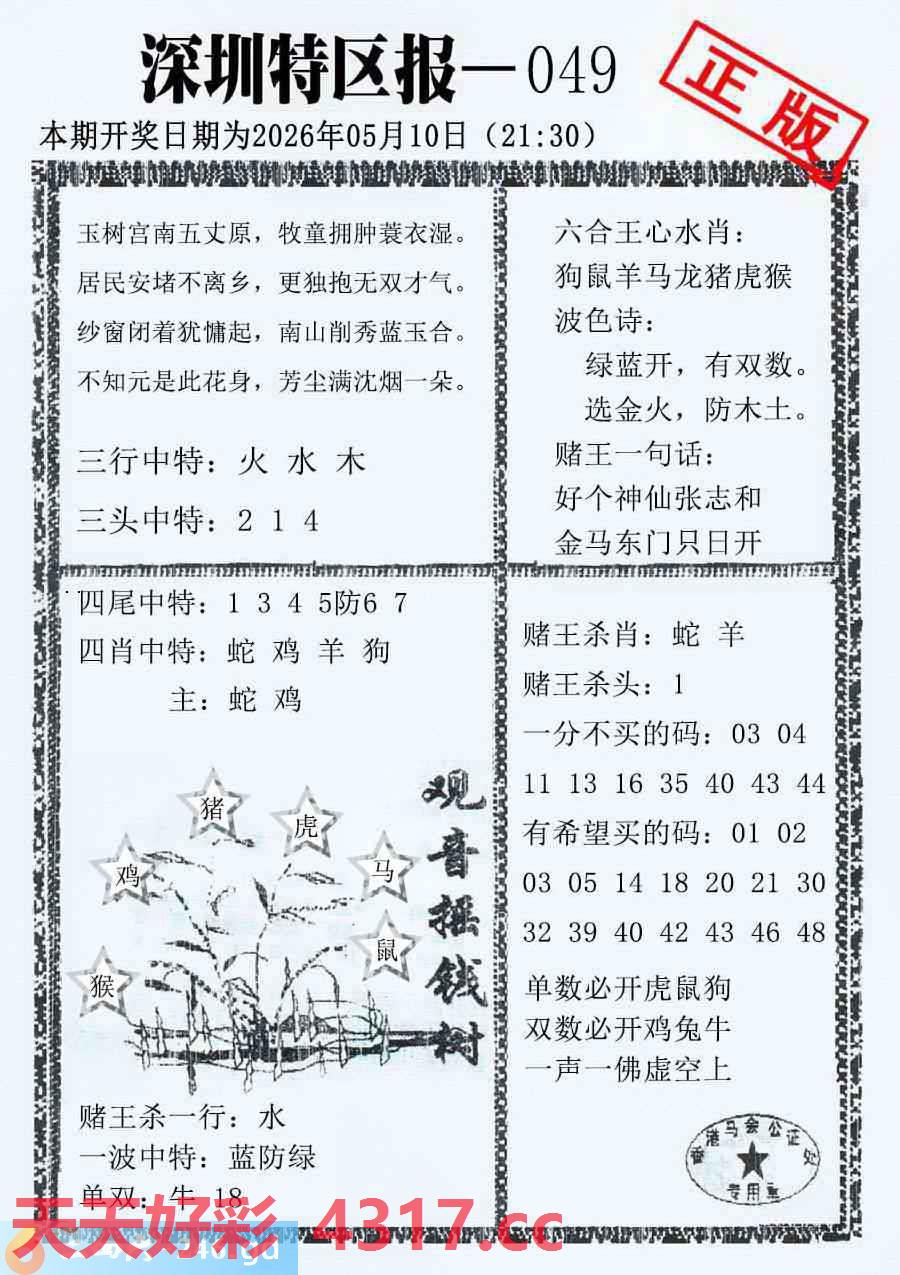 深圳特区报—049
正版
本期开奖日期为2026年05月10日（21:30）
玉树宫南五丈原，牧童拥肿蓑衣湿。
居民安堵不离乡，更独抱无双才气。
纱窗闭着犹慵起，南山削秀蓝玉合。
不知元是此花身，芳尘满沈烟一朵。
三行中特：火 水 木
三头中特：2 1 4
六合王心水肖：
狗鼠羊马龙猪虎猴
波色诗：
绿蓝开，有双数。
选金火，防木土。
赌王一句话：
好个神仙张志和
金马东门只日开
四尾中特：1 3 4 5防6 7
四肖中特：蛇 鸡 羊 狗
主：蛇 鸡
猪
虎
鸡
马
鼠
猴
观音摇钱树
赌王杀一行：水
一波中特：蓝防绿
单双：牛 18
赌王杀肖：蛇 羊
赌王杀头：1
一分不买的码：03 04
11 13 16 35 40 43 44
有希望买的码：01 02
03 05 14 18 20 21 30
32 39 40 42 43 46 48
单数必开虎鼠狗
双数必开鸡兔牛
一声一佛虚空上
香港马会公证处
专用章
天天好彩 4317.cc